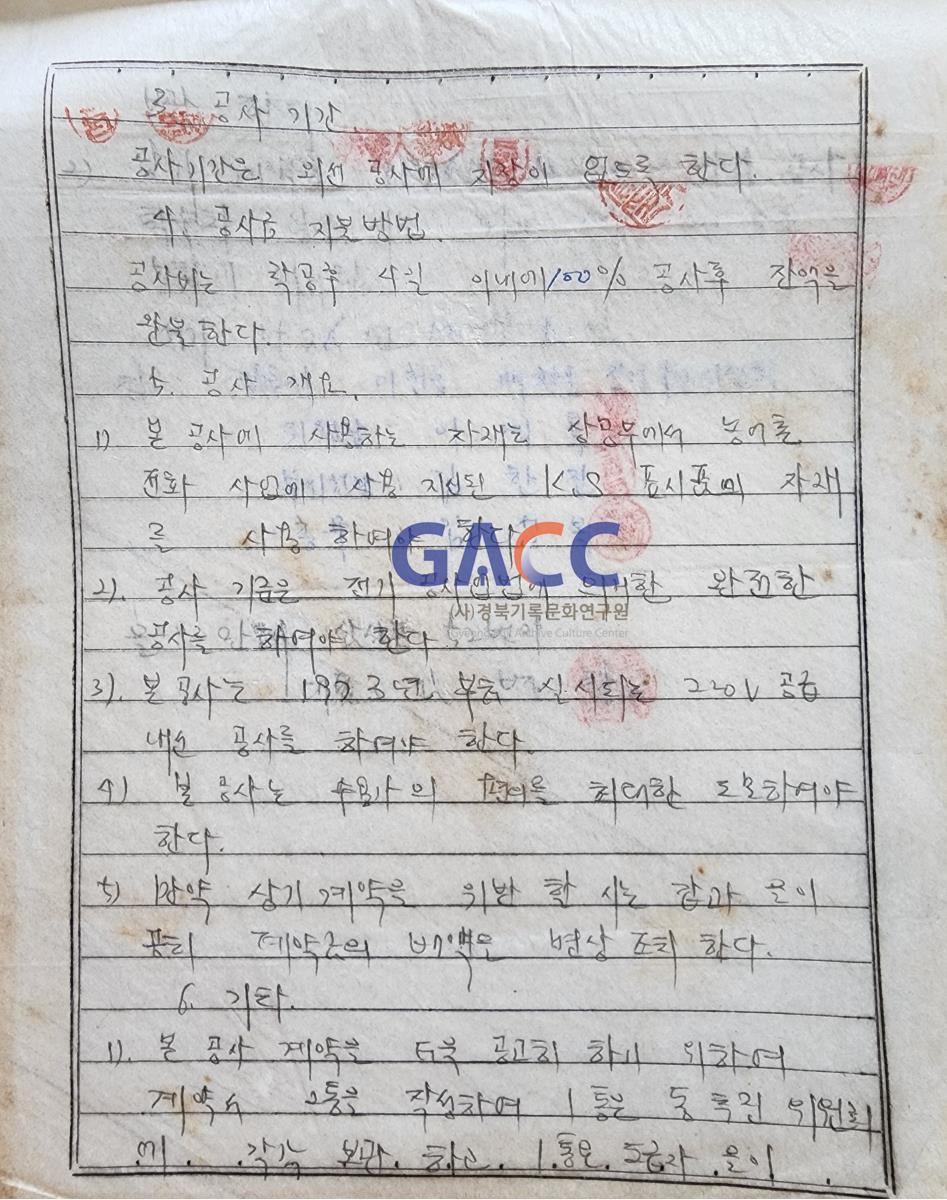 3. 공사 기간
공사기간은 외선 공사에 지장이 없도록 한다.
4. 공사금 지불방법.
공사비는 착공후 4일 이내에 100% 공사후 잔액을
완불한다.
5. 공사 개요.
1) 본 공사에 사용하는 자재는 상공부에서 농어촌
전화 사업에 사용 지정된 K.S 표시품의 자재
를 사용 하여야 한다.
2). 공사 기금은 전기 공사업법에 의거한 완전한
공사를 하여야 한다.
3). 본 공사는 1973년 부터 실시되는 220V 공급
내선 공사를 하여야 한다.
4) 본 공사는 수용가의 편의를 최대한 도모하여야
한다.
5) 만약 상기 계약을 위반 할 시는 갑과 을이
공히 계약금의 배액은 변상 조치 하다.
6. 기타.
1). 본 공사 계약을 더욱 공고히 하기 위하여
계약서 2통을 작성하여 1통은 동 추진 위원회
에. 각각 보관. 하고. 1.통은. 도급자 .을이
GACC
(사)경북기록문화연구원
Gyeongbuk Archive Culture Center